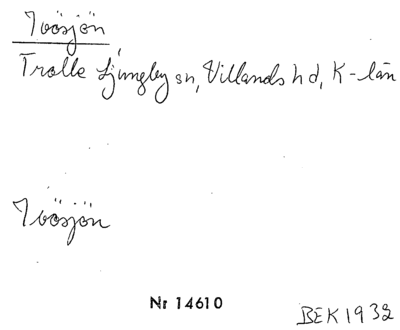 Ivösjön
Trolle Ljungby sn, Villands hd, K-län
Ivösjön
Nr 14610
BEK 1932